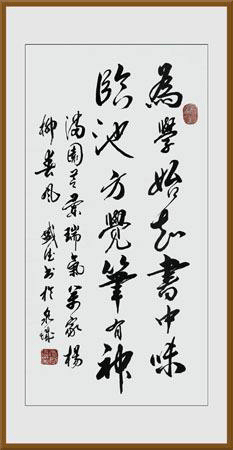 為學始知書中味
臨池方覺筆有神
滿園景瑞氣萬家楊
柳春風 書於泉城